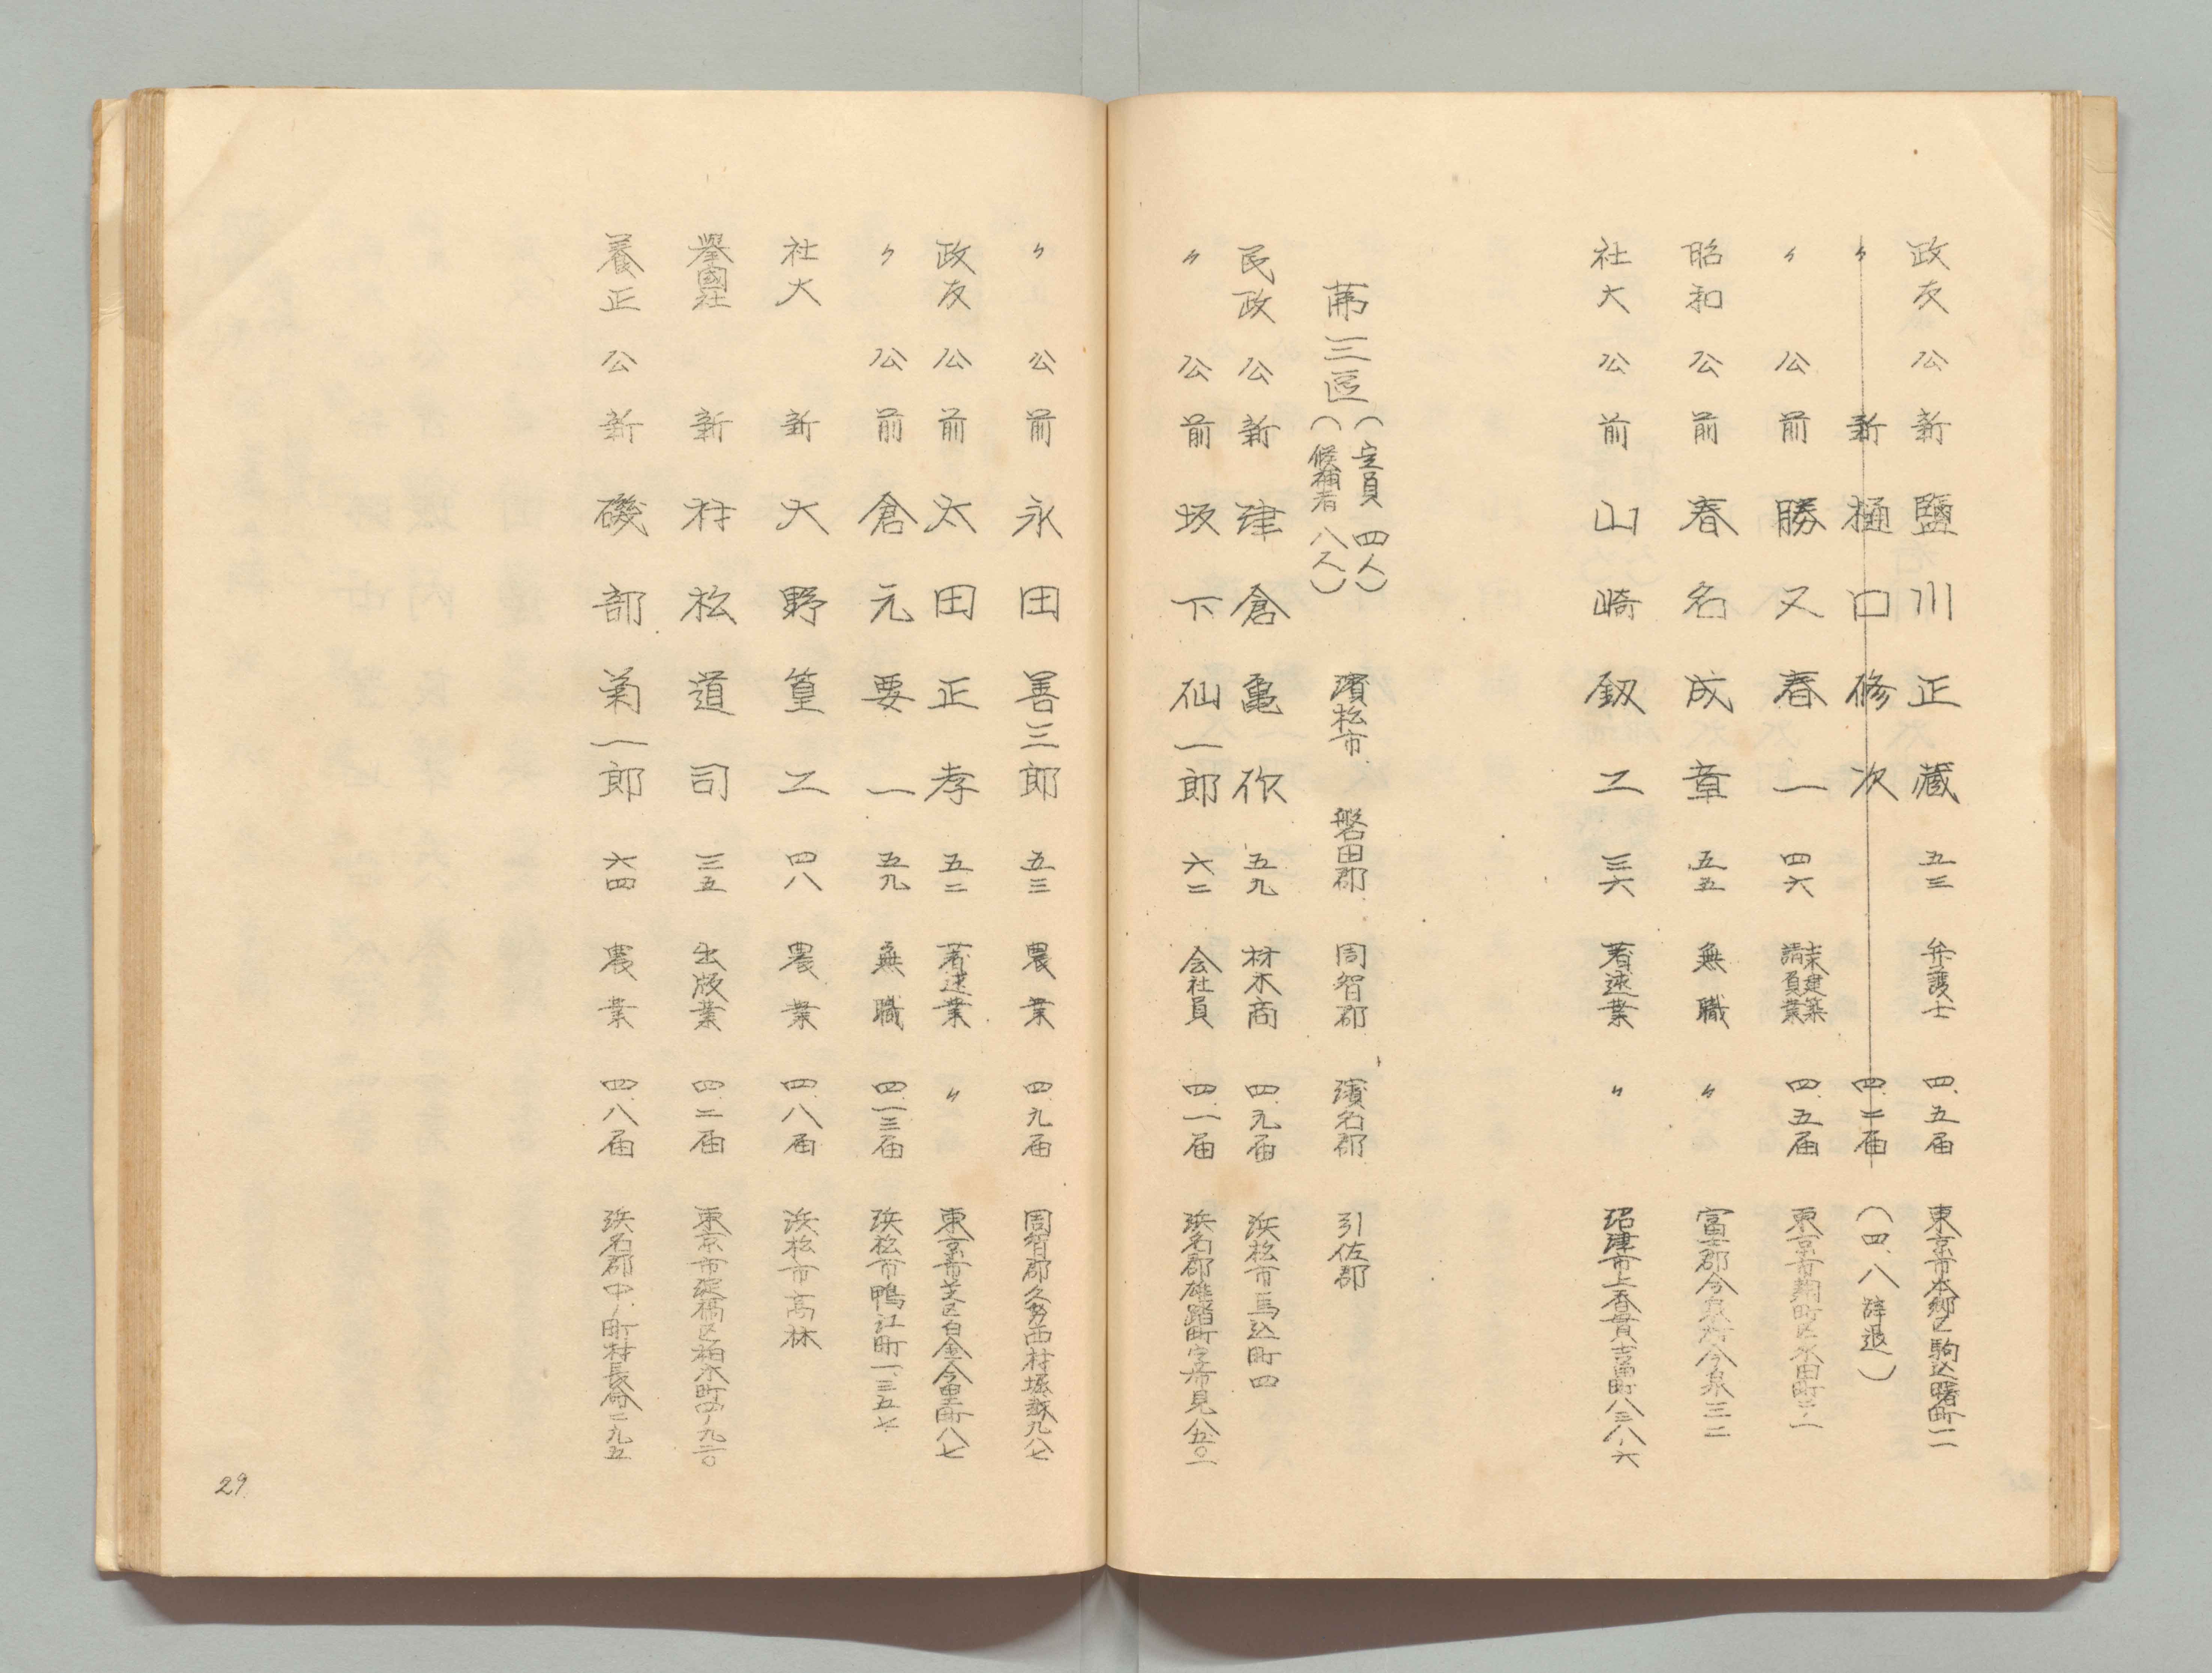 政友 公 新 鹽川正藏 五三 弁護士 四.五届 東京市本郷区駒込曙町一一
〃 新 樋口修次 四.二届 (四.八辞退)
〃 公 前 勝又春一 四六 土木建築請負業 四.五届 東京市麹町区永田町二ノ一
昭和 公 前 春名成章 五五 無職 〃 富士郡今泉村今泉三二
社大 公 前 山崎釼二 三六 著述業 〃 沼津市上香貫吉田町八三八ノ六
第三區 (定員 四人)(候補者 八人) 濱松市 磐田郡 周智郡 濱名郡 引佐郡
民政 公 新 津倉亀作 五九 材木商 四.九届 浜松市馬込町四
〃 公 前 坂下仙一郎 六二 会社員 四.一届 浜名郡雄踏町宇布見八五〇一
〃 公 前 永田善三郎 五三 農業 四.九届 周智郡久努西村堀越九八七
政友 公 前 太田正孝 五二 著述業 〃 東京市芝区白金今里町八七
〃 公 前 倉元要一 五九 無職 四.一三届 浜松市鴨江町一三五七
社大 新 大野篁二 四八 農業 四.八届 浜松市高林
擧國社 新 村松道司 三五 出版業 四.二届 東京市淀橋区柏木町四ノ九二〇
養正 公 新 磯部菊一郎 六四 農業 四.八届 浜名郡中ノ町村長 二九五
29